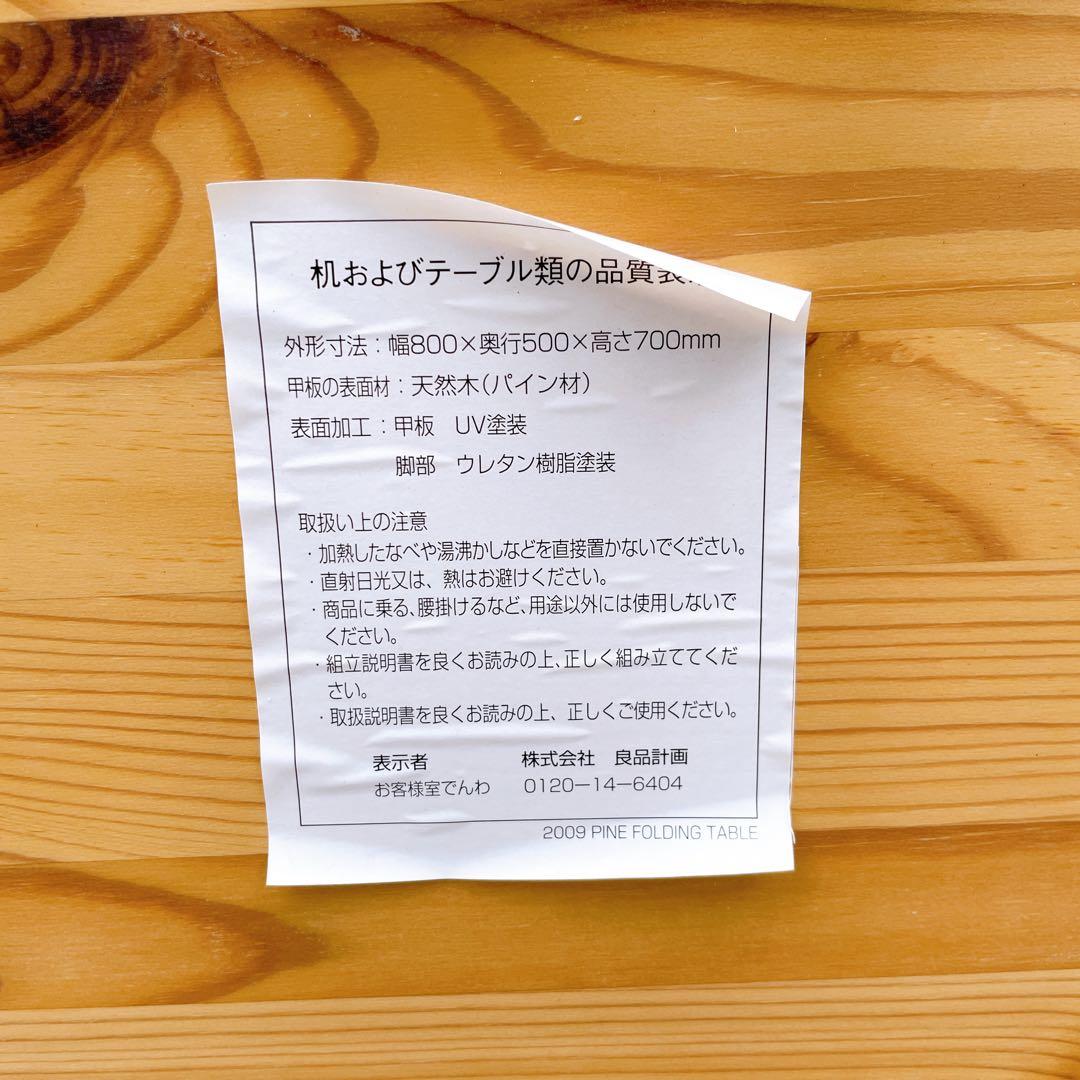 机およびテーブル類の品質表
外形寸法：幅800×奥行500×高さ700mm
甲板の表面材：天然木(パイン材)
表面加工：甲板　UV塗装
脚部　ウレタン樹脂塗装
取扱い上の注意
・加熱したなべや湯沸かしなどを直接置かないでください。
・直射日光又は、熱はお避けください。
・商品に乗る、腰掛けるなど、用途以外には使用しないで
ください。
・組立説明書を良くお読みの上、正しく組み立ててくだ
さい。
・取扱説明書を良くお読みの上、正しくご使用ください。
表示者　株式会社　良品計画
お客様室でんわ　0120－14－6404
2009 PINE FOLDING TABLE